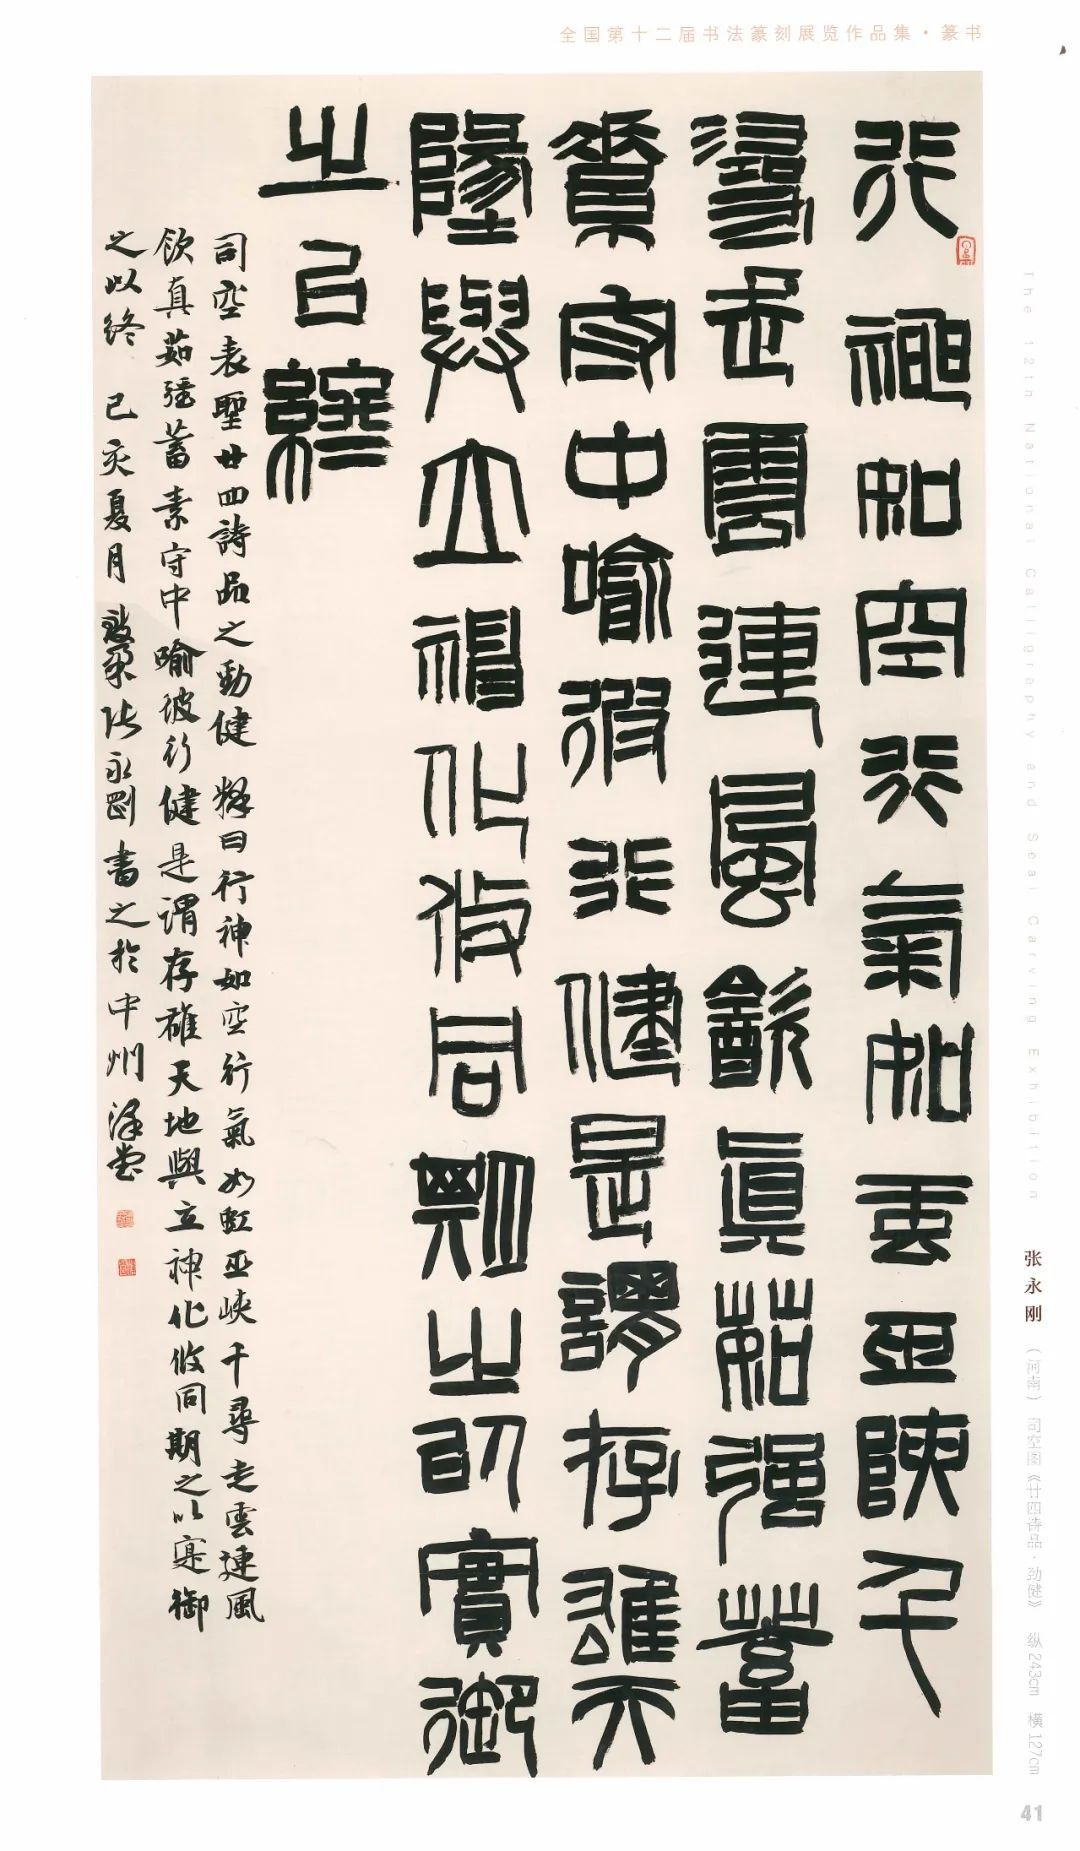 全国第十二届书法篆刻展览作品集·篆书
行神如空行氣如虹巫峽千
尋走雲連風飲真茹強蓄
素守中喻彼行健是謂存雄天
地與立神化攸同期之以實御
之以終
司空表聖廿四詩品之勁健 釋曰行神如空行氣如虹巫峽千尋走雲連風
飲真茹強蓄素守中喻彼行健是謂存雄天地與立神化攸同期之以寔御
之以終 己亥夏月 張永剛書之於中州
The 12th National Calligraphy and Seal Carving Exhibition
张永刚 （河南） 司空图《廿四诗品·劲健》 纵243cm 横127cm
41